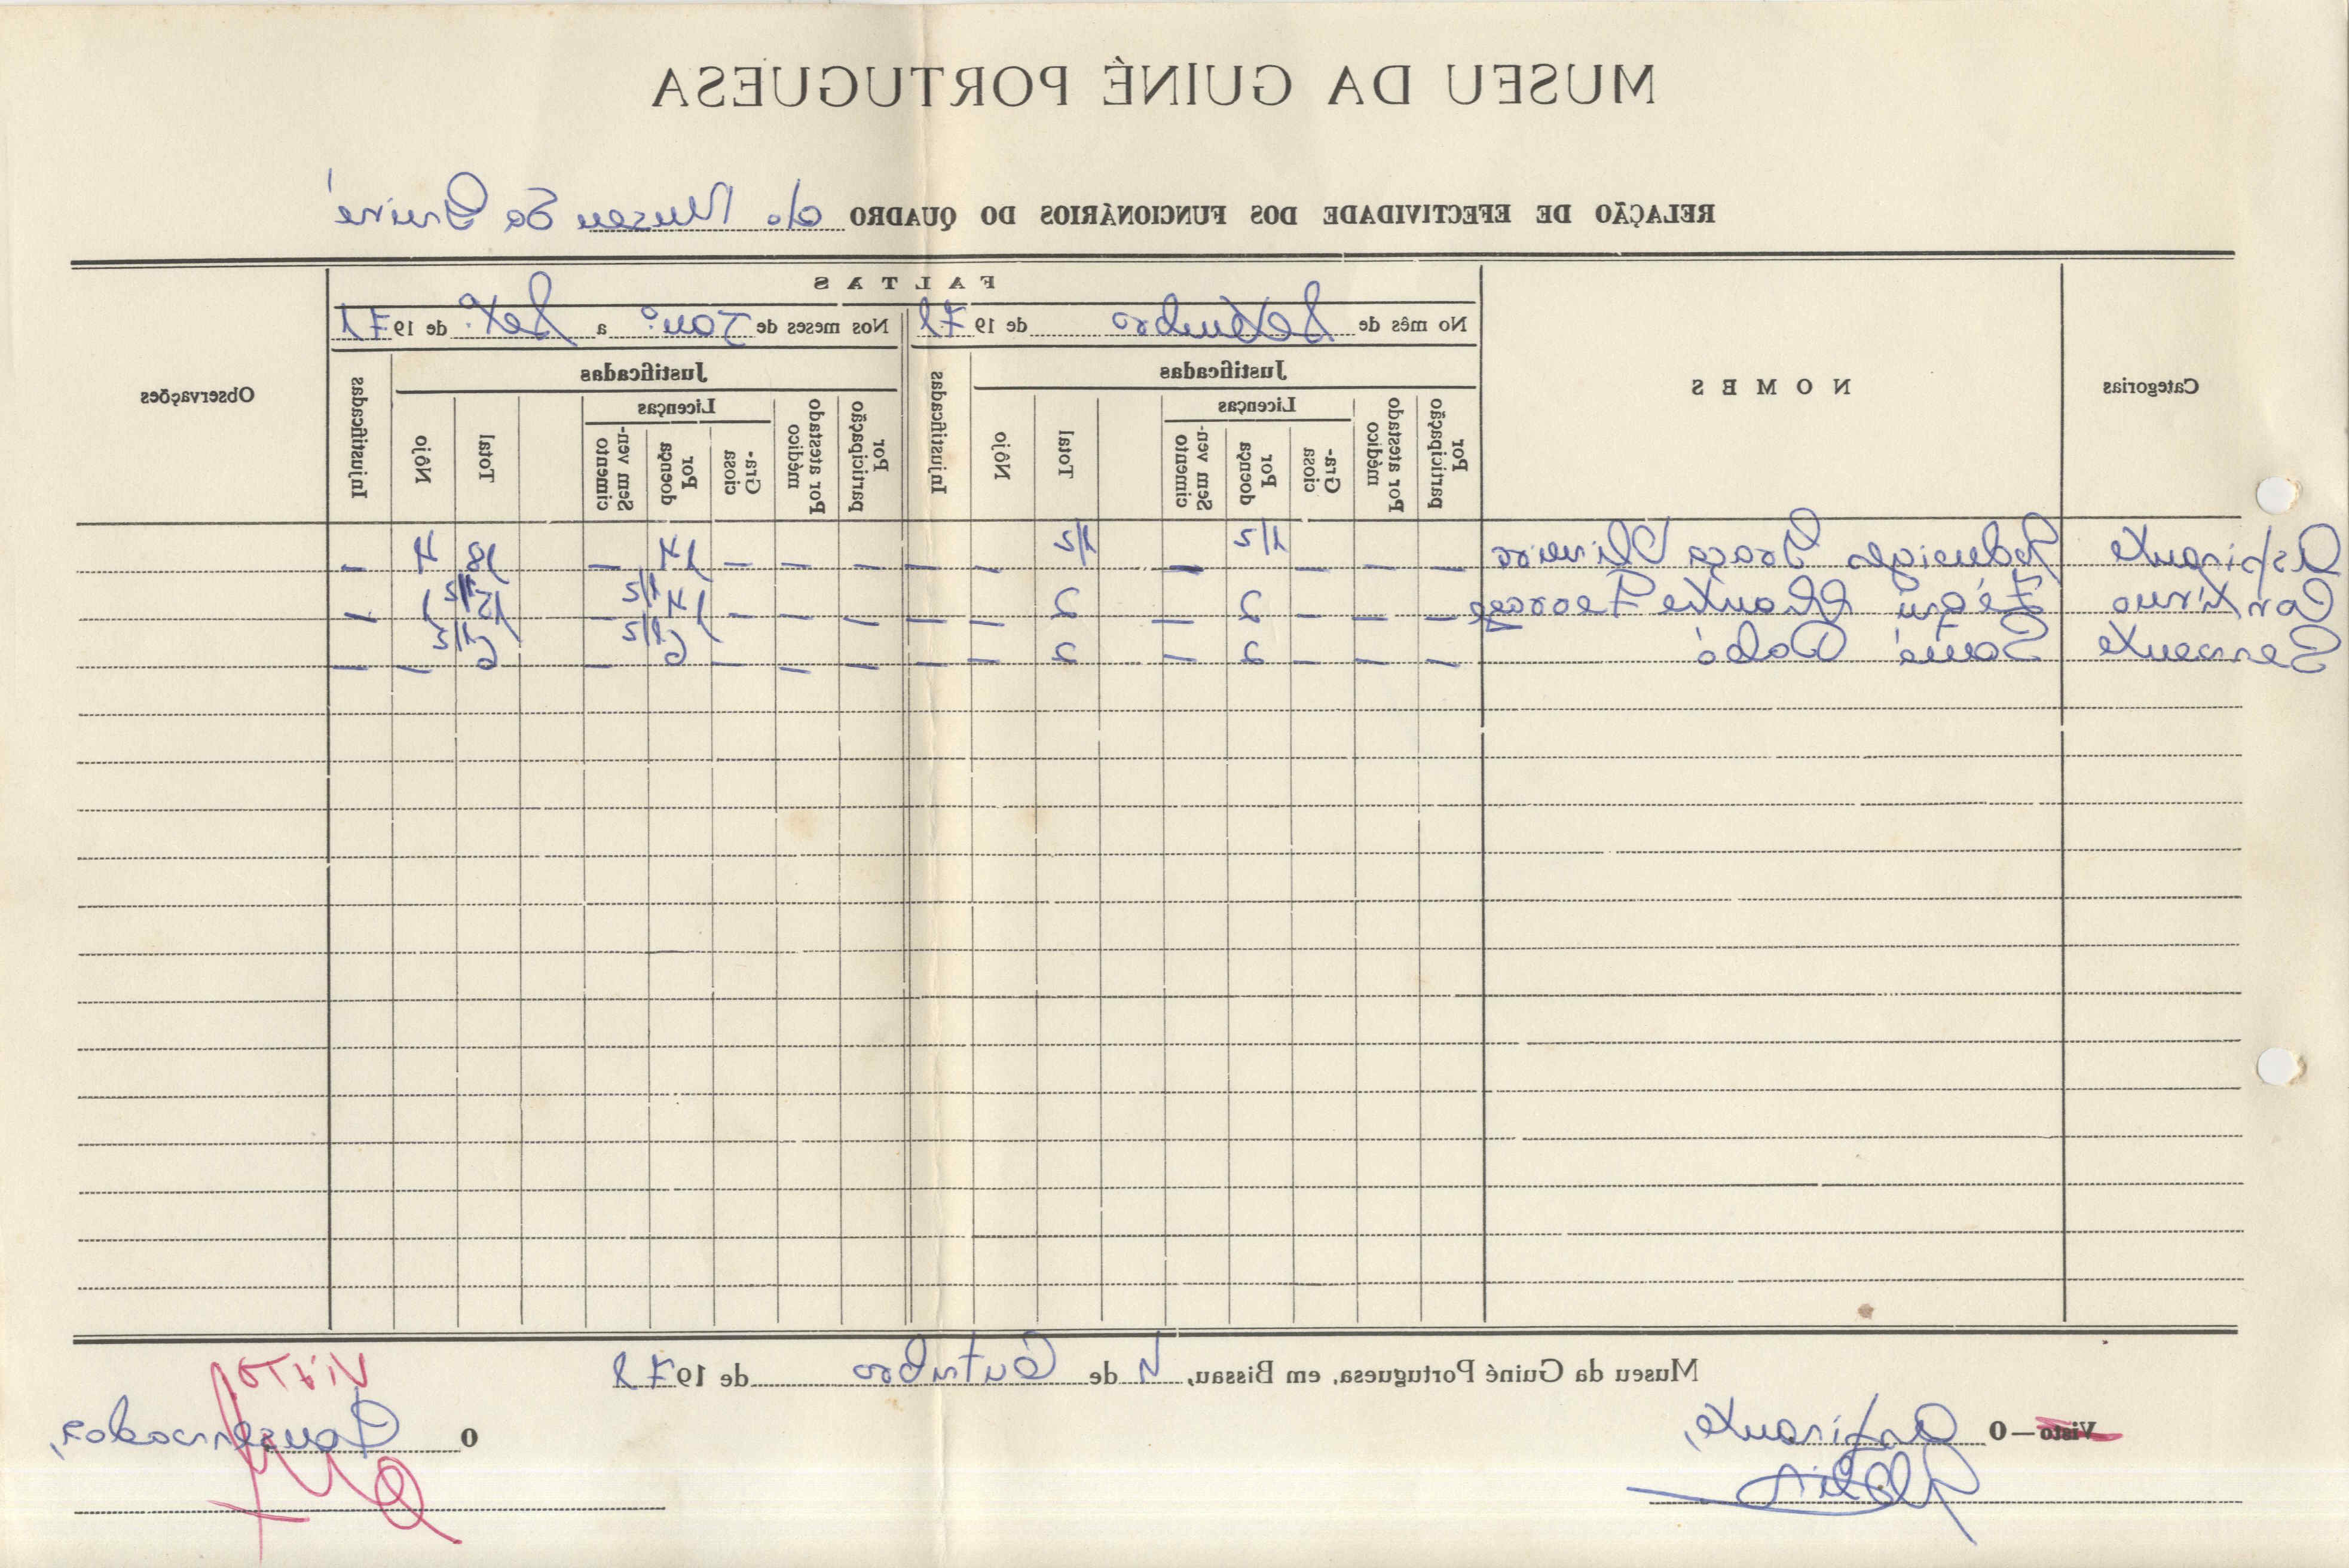 MUSEU DA GUINÉ PORTUGUESA
RELAÇÃO DE EFECTIVIDADE DOS FUNCIONÁRIOS DO QUADRO do Museu da Guiné
Categorias
NOMES
FALTAS
Observações
No mês de Setembro de 1971
Nos meses de Jan.º a Set.º de 1971
Justificadas
Injustificadas
Justificadas
Injustificadas
Por participação
Por atestado médico
Licenças
Graciosa
Por doença
Sem vencimento
Total
Nôjo
Por participação
Por atestado médico
Licenças
Graciosa
Por doença
Sem vencimento
Total
Nôjo
Aspirante Graça Oliveira — — — 1/5 — 1/5 — — — — — 14 — 18 4 —
Contínuo — — — 2 — 2 — — — — — 14 1/5 — 15 1/5 1 —
Servente — — — 2 — 2 — — — — — 6 1/5 — 6 1/5 — —
Museu da Guiné Portuguesa, em Bissau, 1 de Outubro de 1971
Visto — O Aspirante,
O Conservador,
VISTO